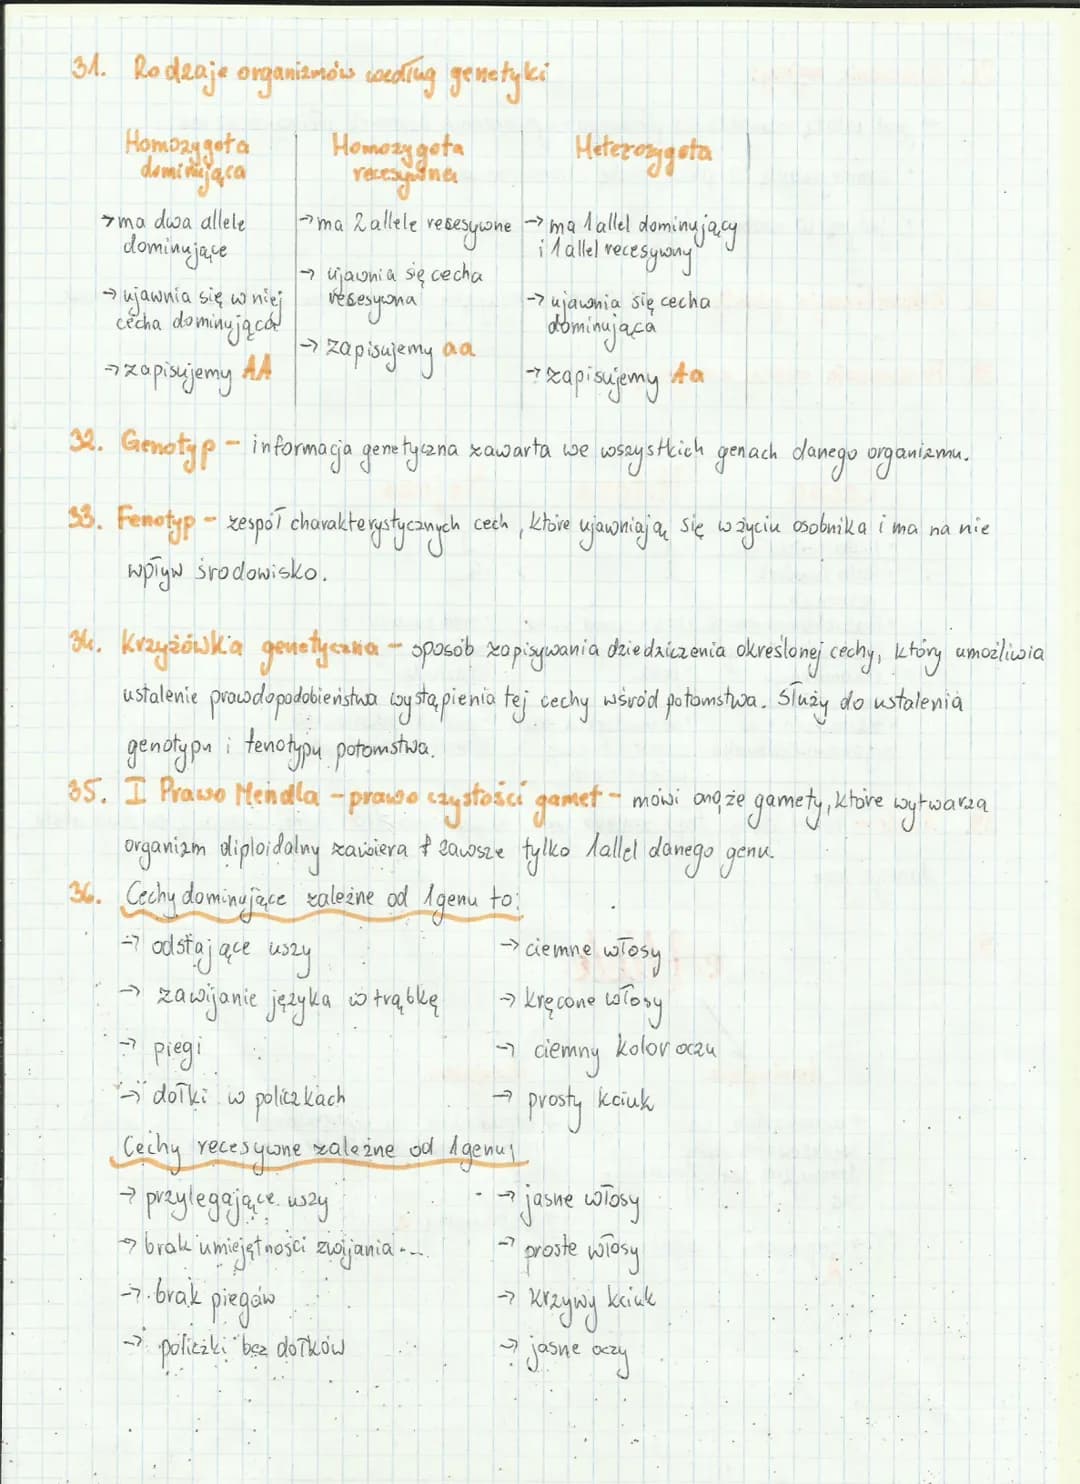 31. Rodzaje organizmów według genetyki
Homozygota
dominująca
→ ma dwa allele
dominujące
→ ujawnia się w niej
cecha dominująca
→ zapisujemy AA
Homozygota
recesywna
→ ma 2 allele recesywne
→ ujawnia się cecha
recesywna
→ zapisujemy aa
Heterozygota
→ ma 1 allel dominujący
i 1 allel recesywny
→ ujawnia się cecha
dominująca
→ zapisujemy Aa
32. Genotyp - informacja genetyczna zawarta we wszystkich genach danego organizmu.
33. Fenotyp - zespół charakterystycznych cech, które ujawniają się w życiu osobnika i ma na nie
wpływ środowisko.
34. Krzyżówka genetyczna - sposób zapisywania dziedziczenia określonej cechy, który umożliwia
ustalenie prawdopodobieństwa wystąpienia tej cechy wśród potomstwa. Służy do ustalenia
genotypu i fenotypu potomstwa.
35. I Prawo Mendla - prawo czystości gamet - mówi ono, że gamety, które wytwarza
organizm diploidalny zawiera zawsze tylko 1 allel danego genu.
36. Cechy dominujące zależne od 1 genu to:
→ odstające uszy
→ zawijanie języka w trąbkę
→ piegi
→ dołki w policzkach
→ ciemne włosy
→ kręcone włosy
→ ciemny kolor oczu
→ prosty kciuk
Cechy recesywne zależne od 1 genu;
→ przylegające uszy
→ brak umiejętności zwijania ...
→ brak piegów
→ policzki bez dołków
→ jasne włosy
→ proste włosy
→ krzywy kciuk
→ jasne oczy